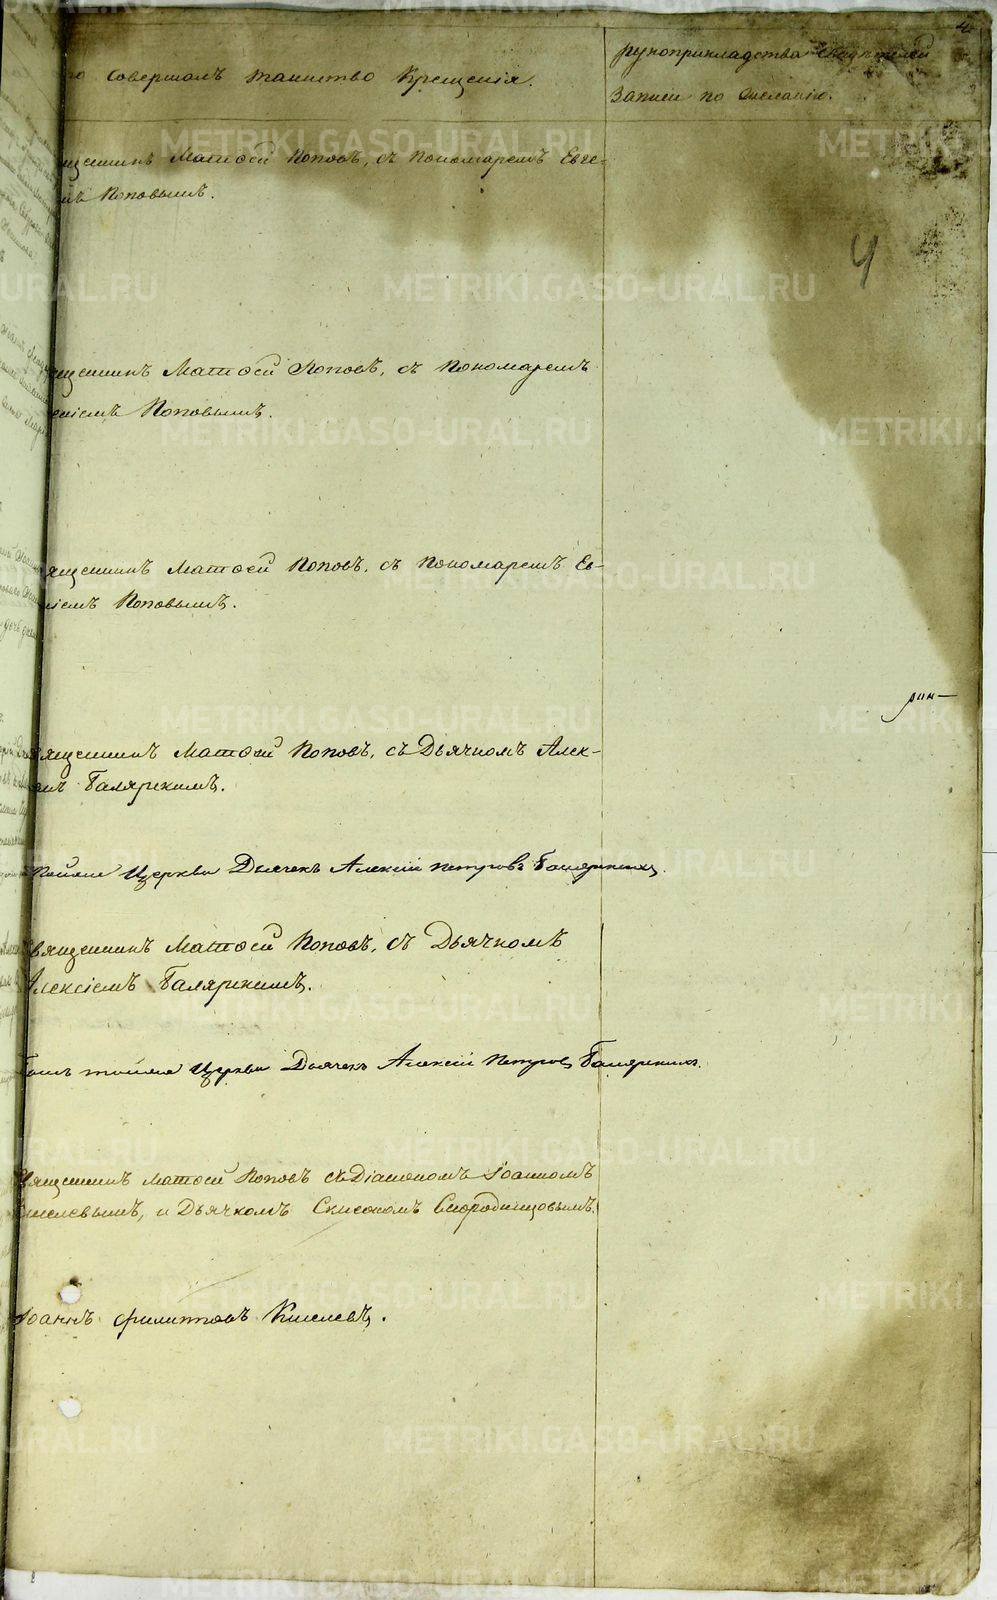 то совершалъ таинство Крещенія.
рукоприкладства свидѣтелей
записи по желанію.
4
щенникъ Матѳей Поповъ, съ Пономаремъ Евге-
мъ Поповымъ.
щенникъ Матѳей Поповъ, съ Пономаремъ
еніемъ Поповымъ.
ященникъ Матѳей Поповъ, съ Пономаремъ Ев-
ніемъ Поповымъ.
рин-
вященникъ Матѳей Поповъ, съ Дьячкомъ Алек-
емъ Балярскимъ.
тойже Церкви Дьячекъ Алексій Петровъ
Священникъ Матѳей Поповъ, съ Дьячкомъ
Алексіемъ Балярскимъ.
тойже Церкви Дьячекъ Алексій Петровъ
Священникъ Матѳей Поповъ съ Діакономъ Іоанномъ
Киселевымъ, и Дьячкомъ Смородинцовымъ.
Іоаннъ Филиповъ Киселевъ.
METRIKI.GASO-URAL.RU